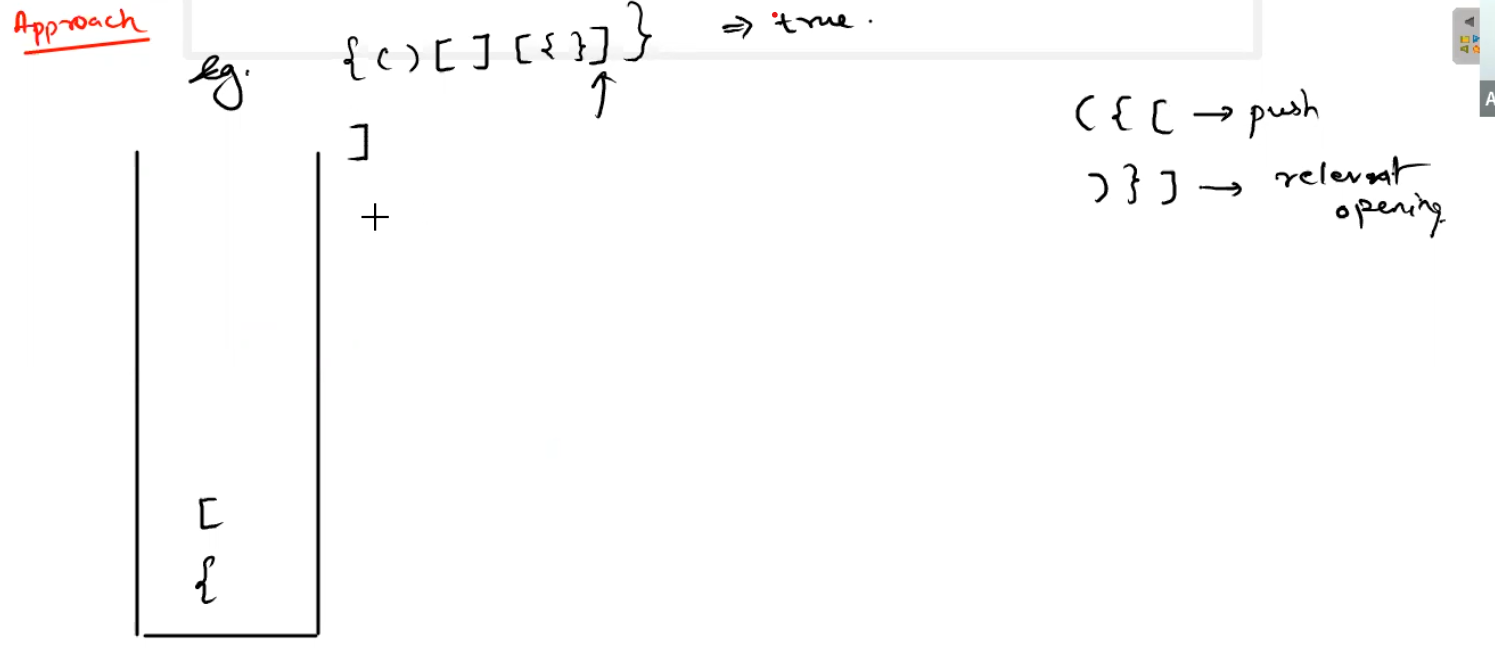 Approach
eg. { ( ) [ ] [ { } ] } ⇒ true.
( { [ → push
]
) } ] → relevant
opening.
[
{
A